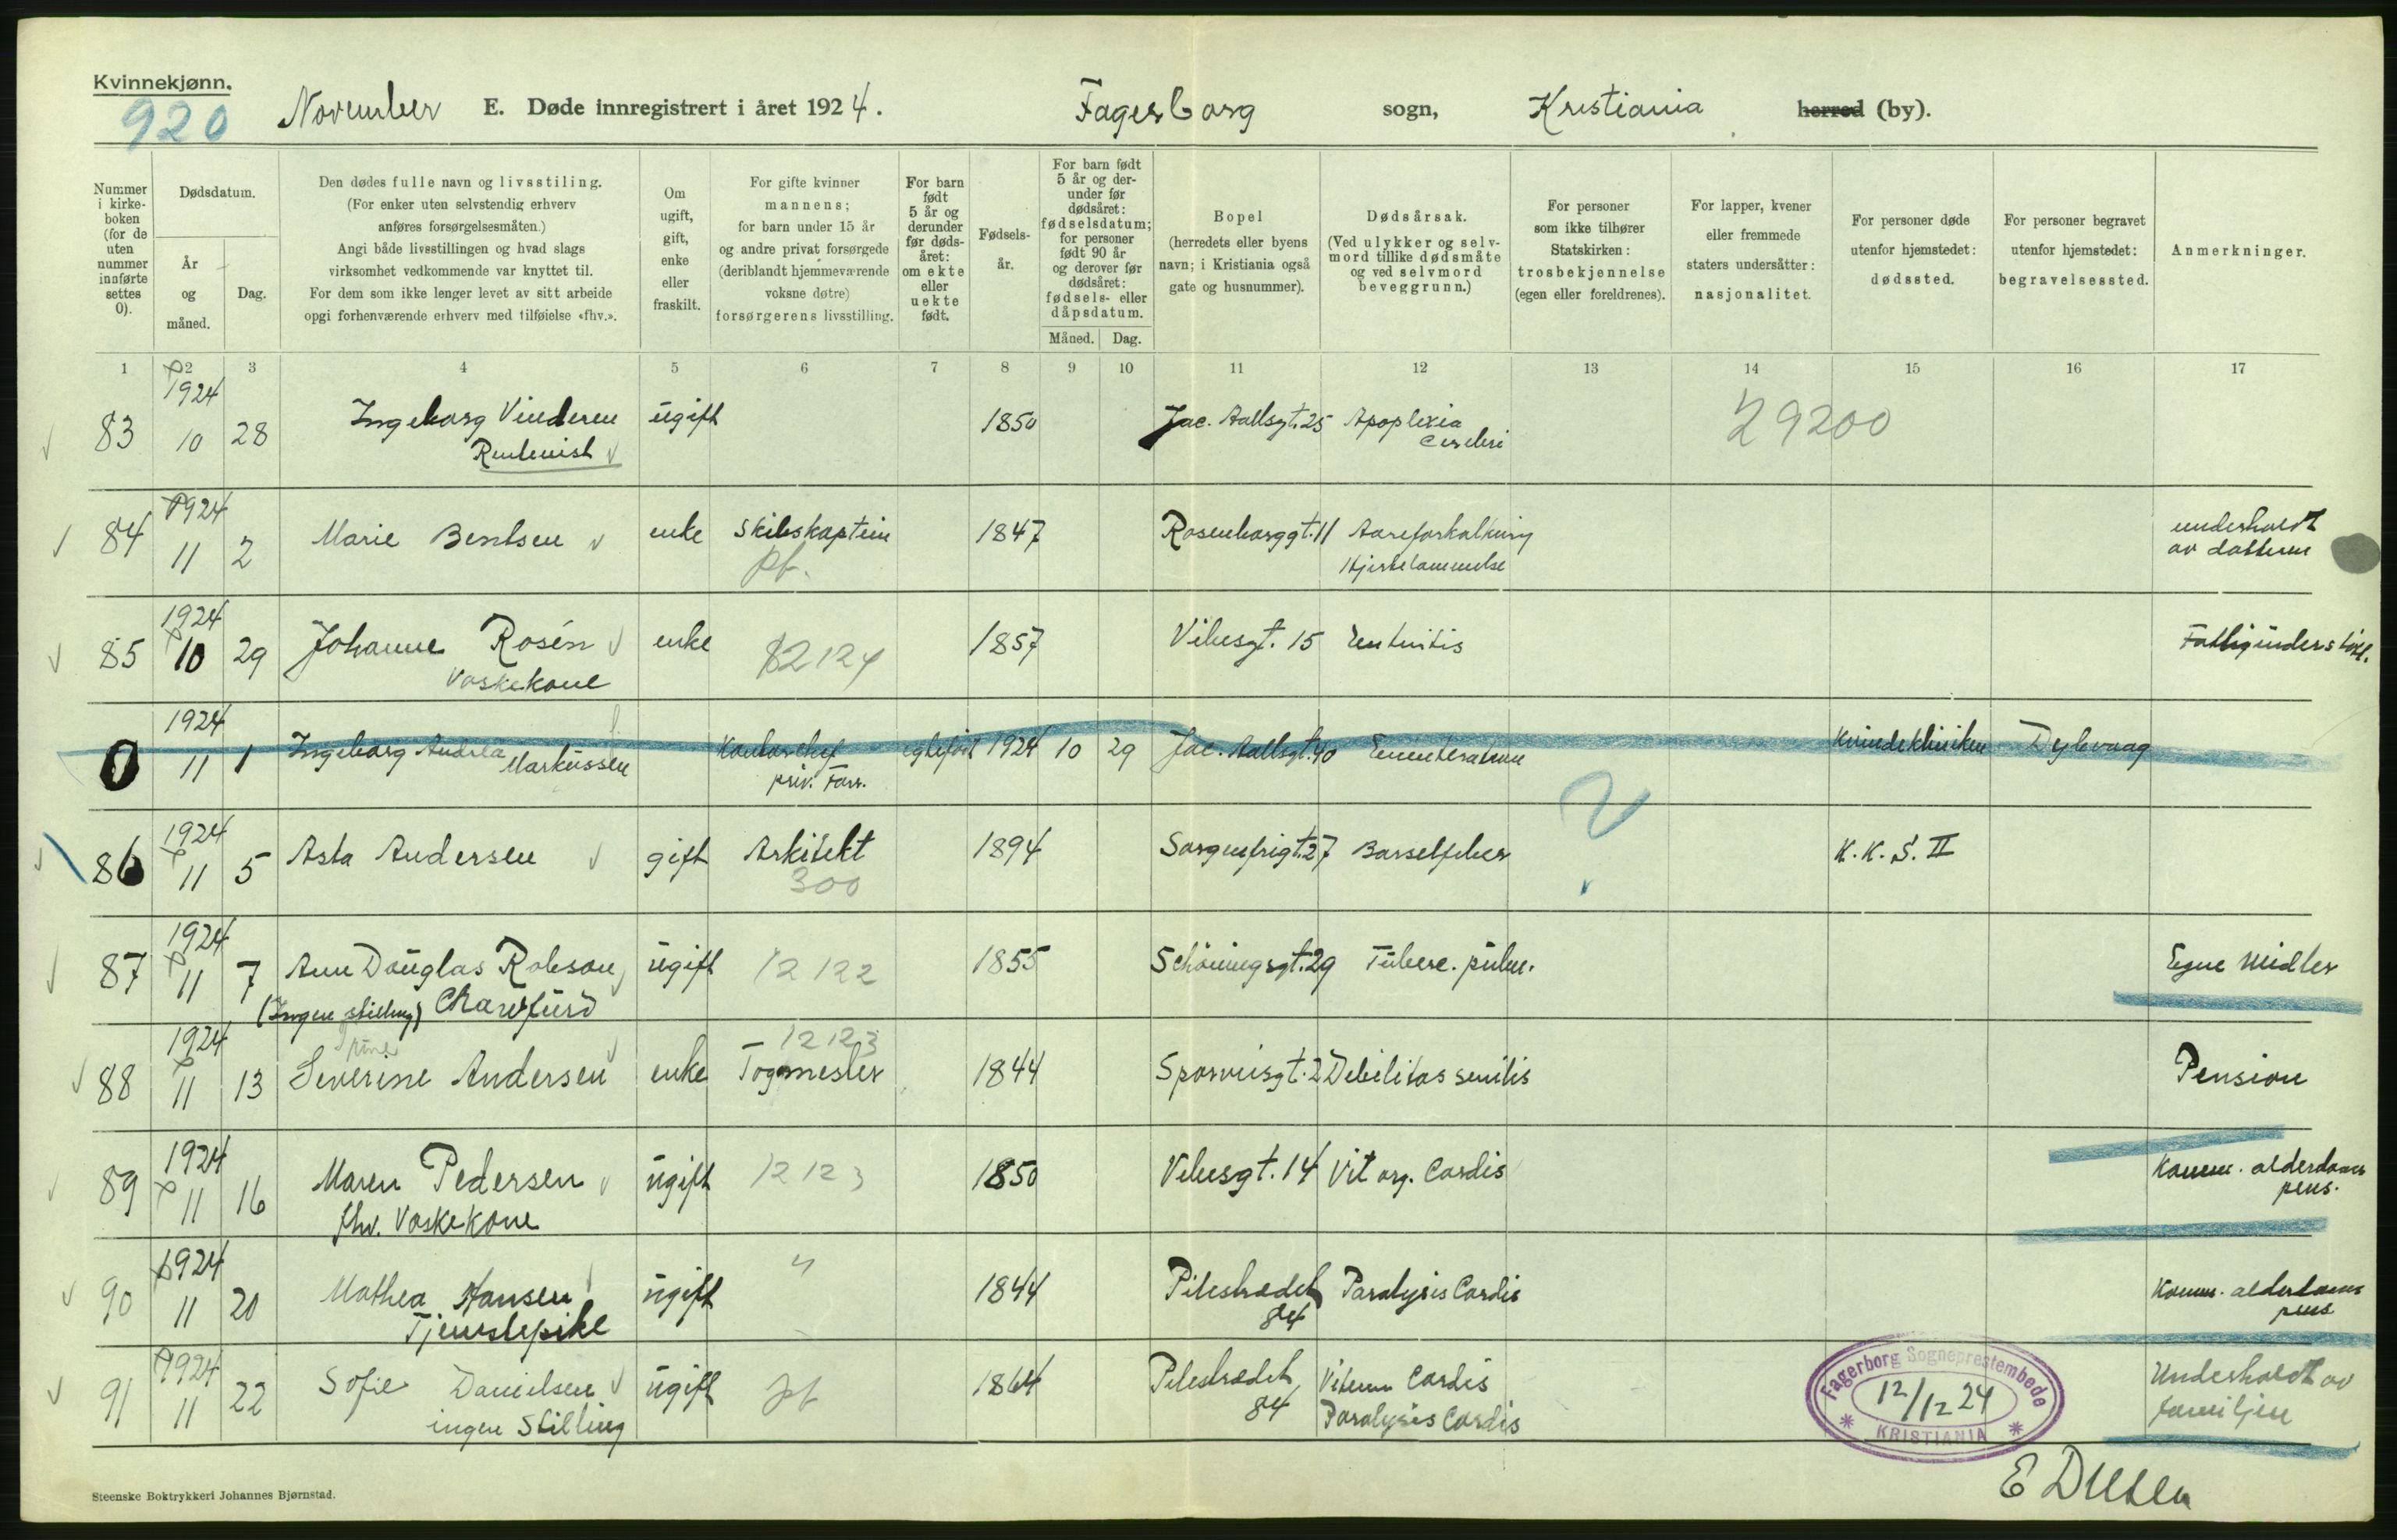 Kvinnekjønn.
920
November E. Døde innregistrert i året 1924. Fagerborg sogn, Kristiania herred (by).
Nummer i kirkeboken (for de uten nummer innførte settes 0).
Dødsdatum.
År og måned.
Dag.
Den dødes fulle navn og livsstiling.
(For enker uten selvstendig erhverv
anføres forsørgelsesmåten.)
Angi både livsstillingen og hvad slags
virksomhet vedkommende var knyttet til.
For dem som ikke lenger levet av sitt arbeide
opgi forhenværende erhverv med tilføielse «fhv.».
Om ugift, gift, enke eller fraskilt.
For gifte kvinner
mannens;
for barn under 15 år
og andre privat forsørgede
(deriblandt hjemmeværende
voksne døtre)
forsørgerens livsstilling.
For barn født 5 år og derunder før dødsåret: om ekte eller uekte født.
Fødselsår.
For barn født 5 år og derunder før dødsåret: fødselsdatum; for personer født 90 år og derover før dødsåret: fødsels- eller dåpsdatum.
Måned. Dag.
Bopel
(herredets eller byens
navn; i Kristiania også
gate og husnummer).
Dødsårsak.
(Ved ulykker og selvmord tillike dødsmåte og ved selvmord beveggrunn.)
For personer
som ikke tilhører
Statskirken:
trosbekjennelse
(egen eller foreldrenes).
For lapper, kvener
eller fremmede
staters undersåtter:
nasjonalitet.
For personer døde
utenfor hjemstedet:
dødssted.
For personer begravet
utenfor hjemstedet:
begravelsessted.
Anmerkninger.
1 2 3 4 5 6 7 8 9 10 11 12 13 14 15 16 17
83 1924 10 28 Ingeborg Vinderen ugift 1850 Jac. Aallsgt. 25 Apoplexia cerebri 29200
Rentenist
84 1924 11 2 Marie Bentsen enke Skibskaptein 1847 Rosenborggt. 11 Aareforkalkning
Hjertelammelse
underholdt
av datteren
pf.
85 1924 10 29 Johanne Rosén enke 82124 1857 Vibesgt. 15 Enteritis Fattigunderstøt.
Vaskekone
0 1924 11 1 Ingeborg Andrea Markussen Kontorchef egtefødt 1924 10 29 Jac. Aallsgt. 40 Kvindekliniken Dybvaag
priv. Forr.
86 1924 11 5 Asta Andersen gift Arkitekt 1894 Sorgenfrigt. 27 Barselfeber K.K.S. II
300
87 1924 11 7 Ann Douglas Robson ugift 12122 1855 Schöningsgt. 29 Tuberc. pulm. Egne midler
(Ingen stilling)
88 1924 11 13 Severine Andersen enke Togmester 1844 Sporveisgt. 2 Debilitas senilis Pension
12123
89 1924 11 16 Maren Pedersen ugift 12123 1850 Vibesgt. 14 Vit org. Cordis Komm. alderdoms
pens.
fhv. Vaskekone
90 1924 11 20 Mathea Hansen ugift " 1844 Pilestrædet 84 Paralysis Cordis Komm. alderdoms
pens
Tjenestepike
91 1924 11 22 Sofie Danielsen ugift pf 1864 Pilestrædet 84 Vitium Cordis
Paralysis Cordis
Underholdt av
familjen
ingen Stilling
Fagerborg Sogneprestembede
12/12 24
KRISTIANIA
Steenske Boktrykkeri Johannes Bjørnstad.